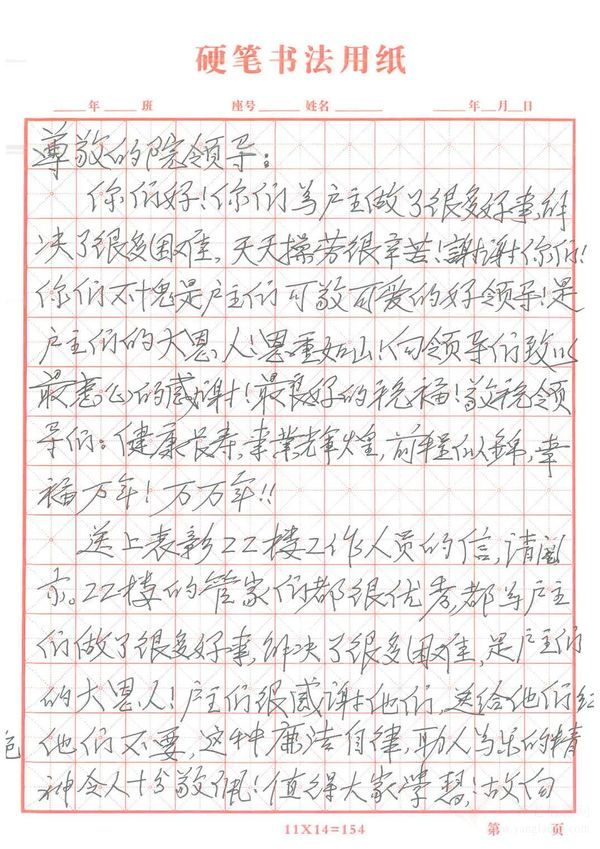 硬笔书法用纸
年 班 座号 姓名 年 月 日
尊敬的院领导：
你们好！你们为户主做了很多好事，解
决了很多困难，天天操劳很辛苦！謝謝你们！
你们不愧是户主们可敬可爱的好领导！是
户主们的大恩人！恩重如山！向领导们致以
最衷心的感谢！最良好的祝福！敬祝领
导们：健康长寿，事業辉煌，前程似錦，幸
福万年！万万年！！
送上表彰22楼工作人员的信，请阅
示。22楼的管家们都很优秀，都为户主
们做了很多好事，解决了很多困难，是户主们
的大恩人！户主们很感谢他们，送给他们红
包他们不要，这种廉洁自律，助人为乐的精
神令人十分敬佩！值得大家学習！故向
11X14=154 第 页